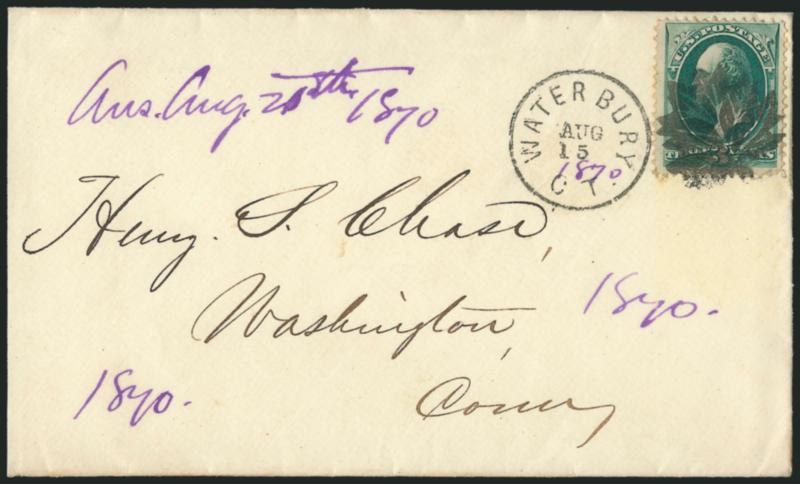 U.S. POSTAGE
Ans. Aug. 20th. 1870
WATERBURY
AUG
15
1870
CT.
Henry. S. Chase,
Washington,
1870.
1870.
Conn,